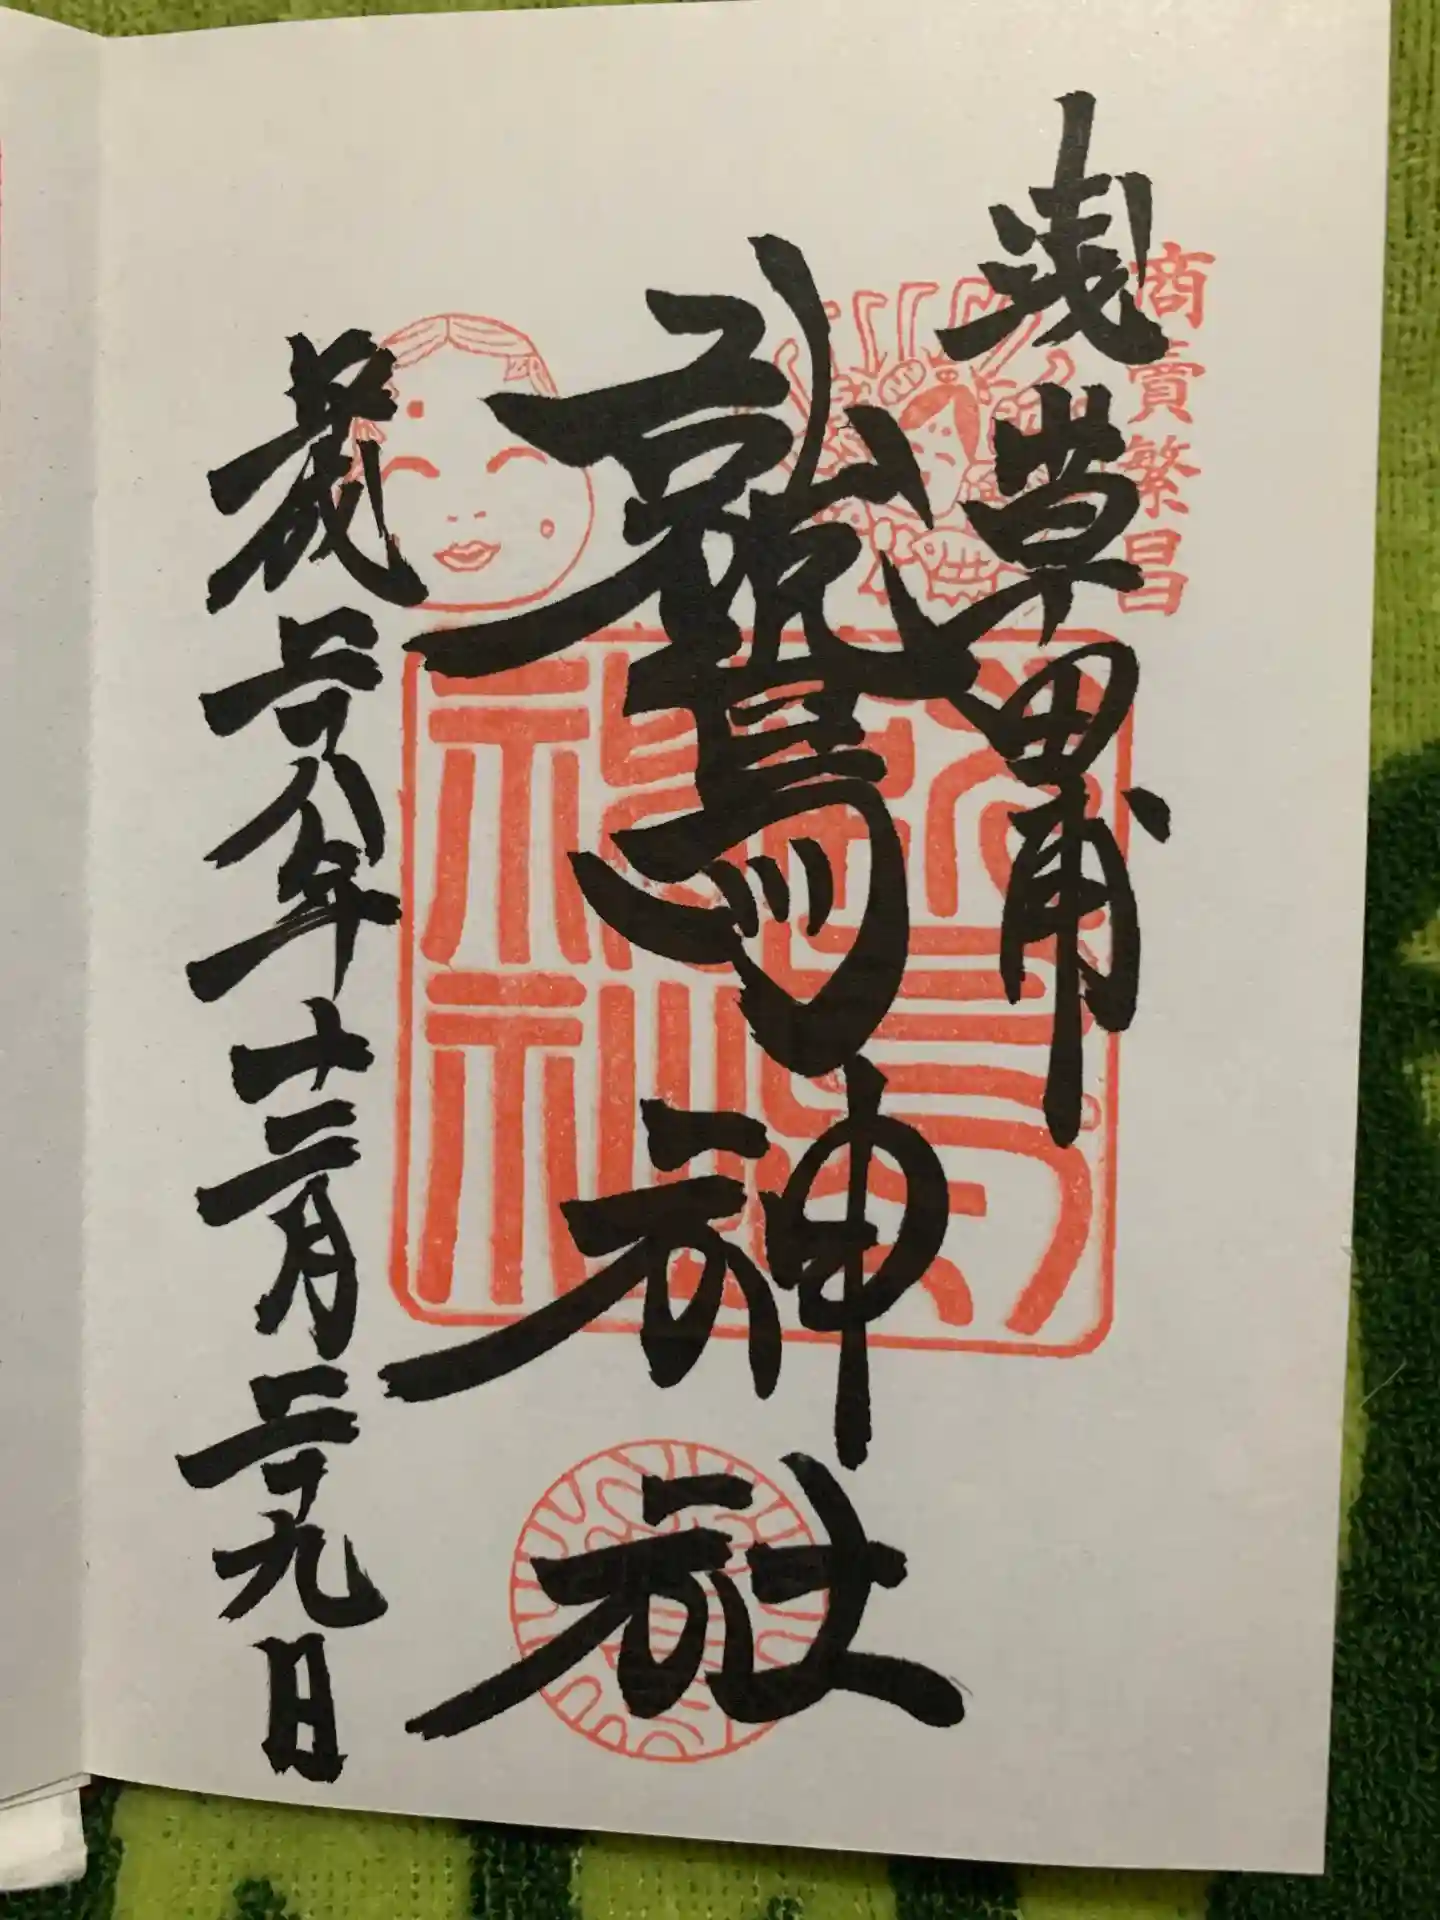 商賣繁昌
浅草田甫
鷲神社
鷲神社
平成二十八年十二月二十九日